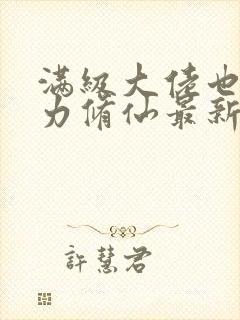 满级大佬也
力脩仙最新
許慧君